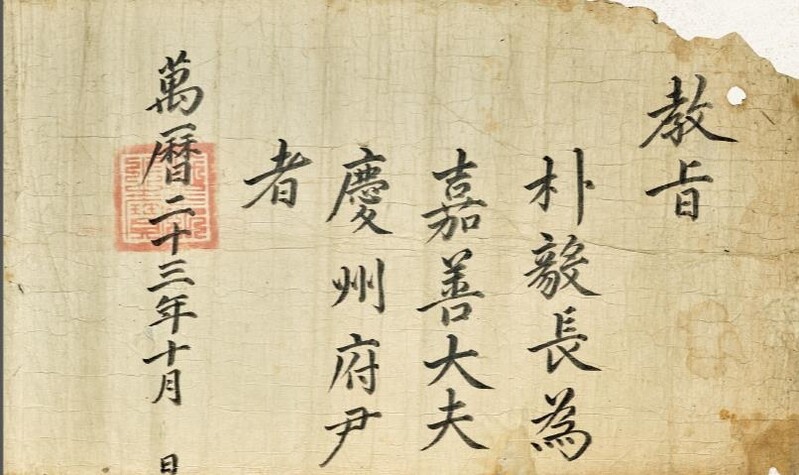 教旨
朴毅長為
嘉善大夫
慶州府尹
者
萬曆二十三年十月 日